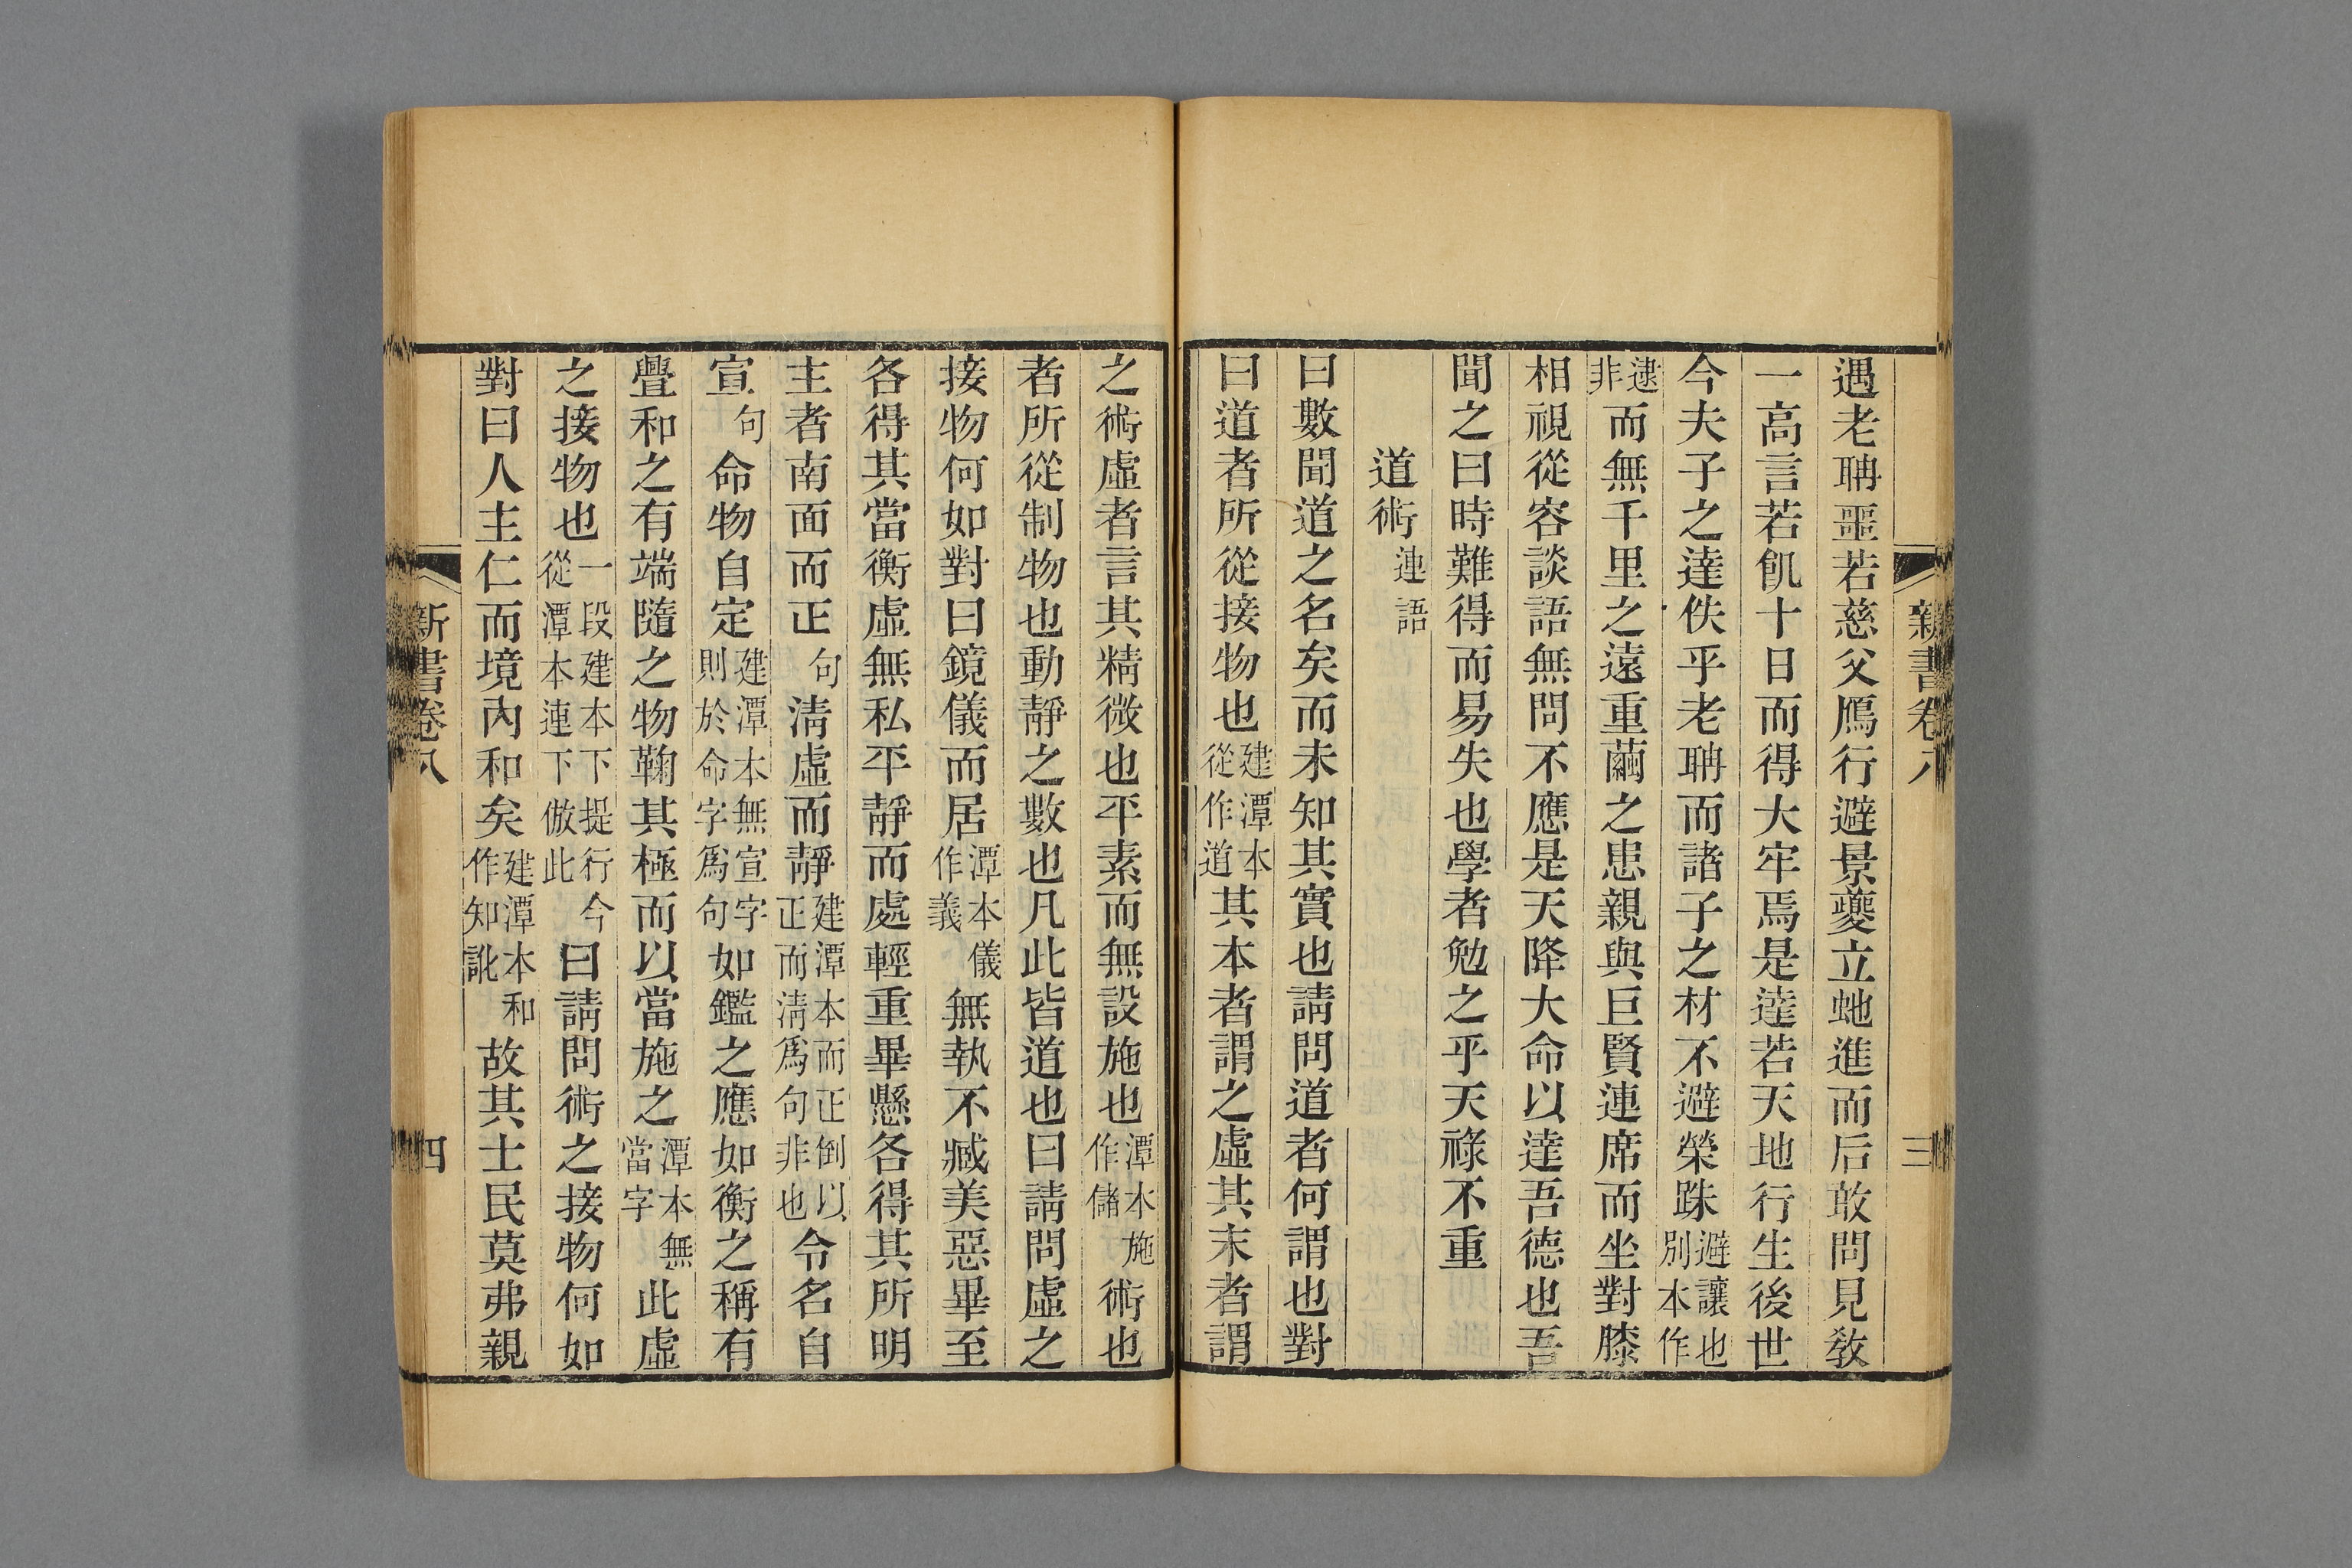 新書卷八 三
遇老聃噩若慈父鴈行避景夔立虵進而后敢問見敎
一高言若飢十日而得大牢焉是達若天地行生後世
今夫子之達佚乎老聃而諸子之材不避榮跦避讓也別本作
逮非而無千里之遠重繭之患親與巨賢連席而坐對膝
相視從容談語無問不應是天降大命以達吾德也吾
聞之曰時難得而易失也學者勉之乎天祿不重
道術連語
曰數聞道之名矣而未知其實也請問道者何謂也對
曰道者所從接物也建潭本從作道其本者謂之虛其末者謂
之術虛者言其精微也平素而無設施也潭本施作儲術也
者所從制物也動靜之數也凡此皆道也曰請問虛之
接物何如對曰鏡儀而居潭本儀作義無執不臧美惡畢至
各得其當衡虛無私平靜而處輕重畢懸各得其所明
主者南面而正句淸虛而靜建潭本而正倒以正而淸爲句非也令名自
宣句命物自定建潭本無宣字則於命字爲句如鑑之應如衡之稱有
舋和之有端隨之物鞠其極而以當施之潭本無當字此虛
之接物也一段建本下提行今從潭本連下倣此曰請問術之接物何如
對曰人主仁而境內和矣建潭本和作知訛故其士民莫弗親
新書卷八 四